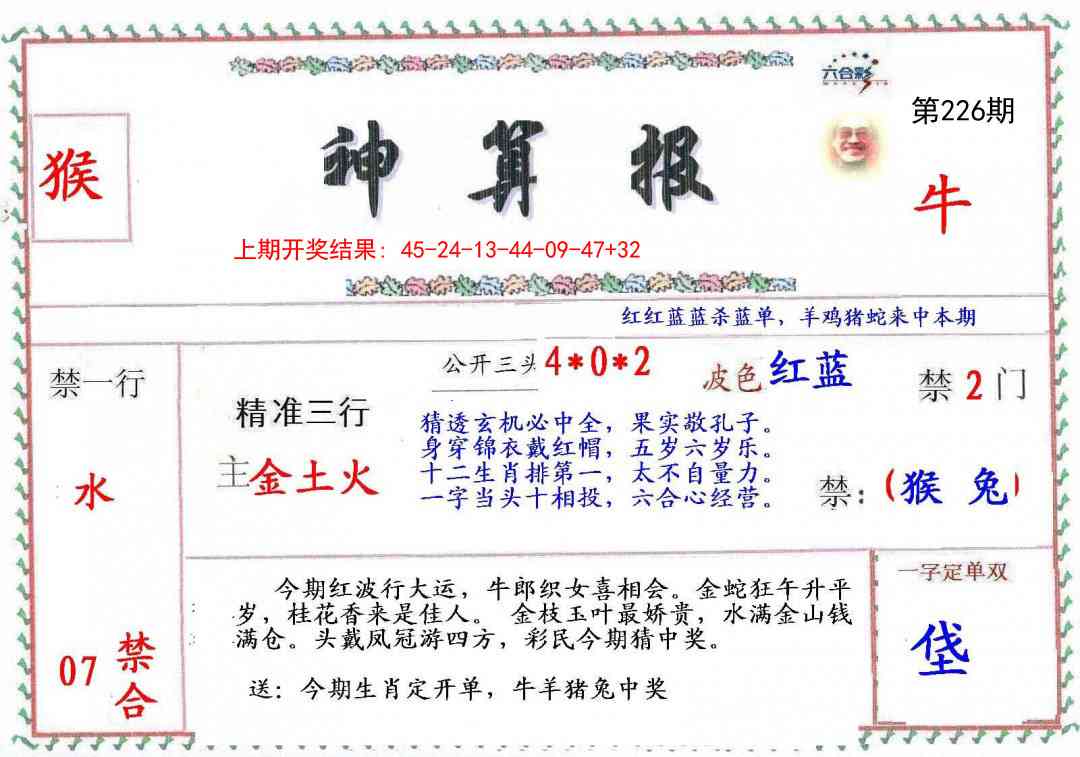 六合彩
第226期
猴
神算报
牛
上期开奖结果：45-24-13-44-09-47+32
红红蓝蓝杀蓝单，羊鸡猪蛇来中本期
禁一行
水
07
禁合
精准三行
主金土火
公开三头4*0*2
波色红蓝
猜透玄机必中全，果实敬孔子。
身穿锦衣戴红帽，五岁六岁乐。
十二生肖排第一，太不自量力。
一字当头十相投，六合心经营。
禁2门
禁：(猴 兔)
今期红波行大运，牛郎织女喜相会。金蛇狂午升平
岁，桂花香来是佳人。 金枝玉叶最娇贵，水满金山钱
满仓。头戴凤冠游四方，彩民今期猜中奖。
送：今期生肖定开单，牛羊猪兔中奖
一字定单双
垡